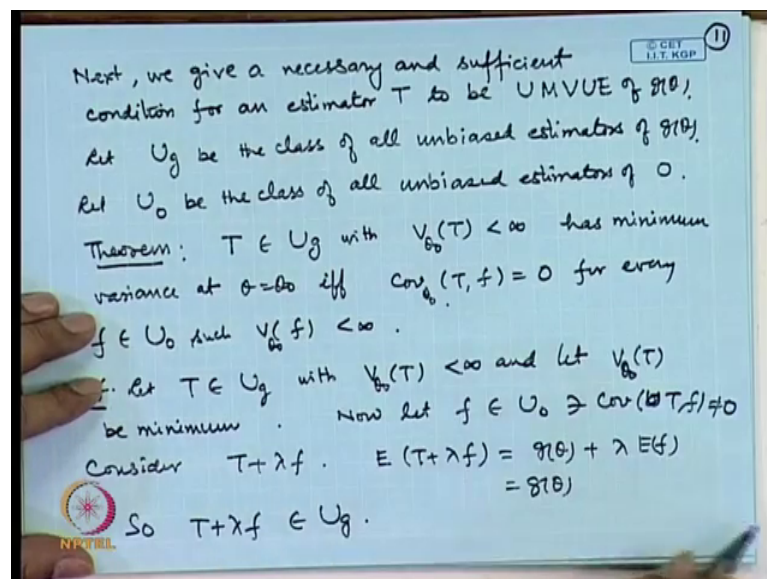 11
© CET
I.I.T. KGP
Next, we give a necessary and sufficient
condition for an estimator T to be UMVUE of g(θ).
Let U_g be the class of all unbiased estimators of g(θ).
Let U_0 be the class of all unbiased estimators of 0.
Theorem: T ∈ U_g with V_θ0(T) < ∞ has minimum
variance at θ=θ0 iff Cov_θ0(T, f) = 0 for every
f ∈ U_0 such V_θ0(f) < ∞.
f. Let T ∈ U_g with V_θ0(T) < ∞ and let V_θ0(T)
be minimum. Now let f ∈ U_0 ∋ Cov(T,f) ≠ 0
Consider T+λf. E(T+λf) = g(θ) + λ E(f)
= g(θ)
So T+λf ∈ U_g.
NPTEL